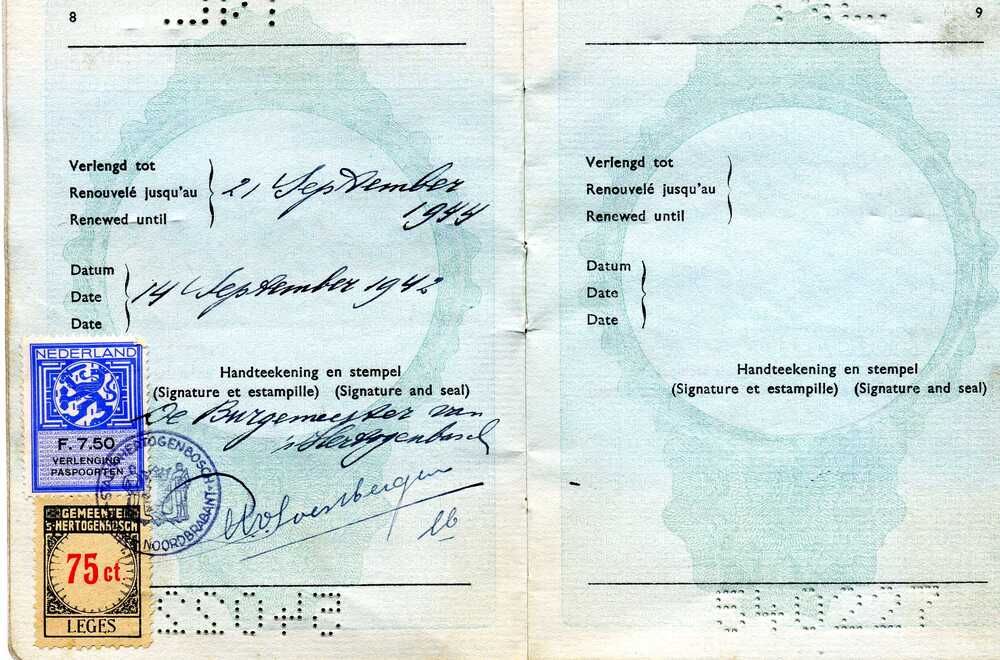 8
Verlengd tot
Renouvelé jusqu'au
Renewed until
21 September
1944
Datum
Date
Date
14 September 1942
NEDERLAND
F. 7.50
VERLENGING
PASPOORTEN
Handteekening en stempel
(Signature et estampille) (Signature and seal)
De Burgemeester van
's Hertogenbosch
'S-HERTOGENBOSCH
NOORDBRABANT
GEMEENTE
'S-HERTOGENBOSCH
75 ct.
LEGES
9
Verlengd tot
Renouvelé jusqu'au
Renewed until
Datum
Date
Date
Handteekening en stempel
(Signature et estampille) (Signature and seal)
540227